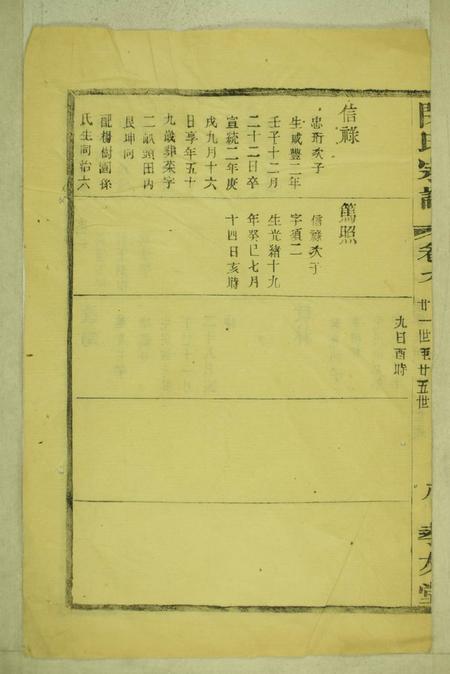 氏宗譜
卷六
廿一世至廿五世
孝友堂
九日酉時
信祿
忠珩次子
生咸豐二年
壬子十二月
二十二日卒
宣統二年庚
戌九月十六
日享年五十
九歲葬菜字
二畝頭田內
艮坤向
配楊樹園孫
氏生同治六
篤照
信祿次子
字須二
生光緒十九
年癸巳七月
十四日亥時